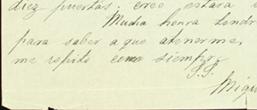 diez puertas. cree estará
Mucha honra tendr
para saber a que atenerme,
me repito como siempre
S.S.
Migu